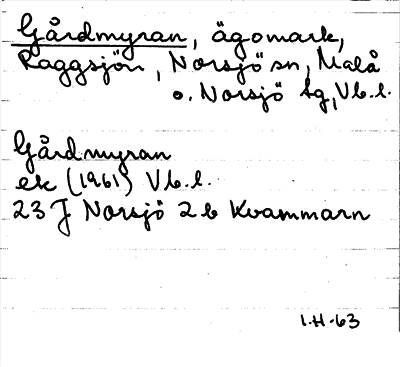 Gårdmyran, ägomark,
Raggsjön, Norsjö sn, Malå
o. Norsjö tg, Vb. l.
Gårdmyran
ek (1961) Vb. l.
23 J Norsjö 2 b Kvammarn
I.H-63